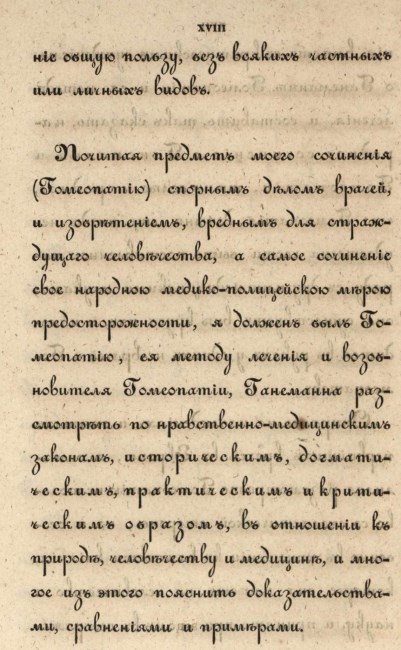 xviii
ніе общую пользу, безъ всякихъ частныхъ
или личныхъ видовъ.
Почитая предметъ моего сочиненія
(Гомеопатію) спорнымъ дѣломъ врачей,
и изобрѣтеніемъ, вреднымъ для страж-
дущаго человѣчества, а самое сочиненіе
свое народною медико-полицейскою мѣрою
предосторожности, я долженъ былъ Го-
меопатію, ея методу леченія и возоб-
новителя Гомеопатіи, Ганеманна раз-
смотрѣть по нравственно-медицинскимъ
законамъ, историческимъ, догмати-
ческимъ, практическимъ и крити-
ческимъ образомъ, въ отношеніи къ
природѣ, человѣчеству и медицинѣ, и мно-
гое изъ этого пояснить доказательства-
ми, сравненіями и примѣрами.